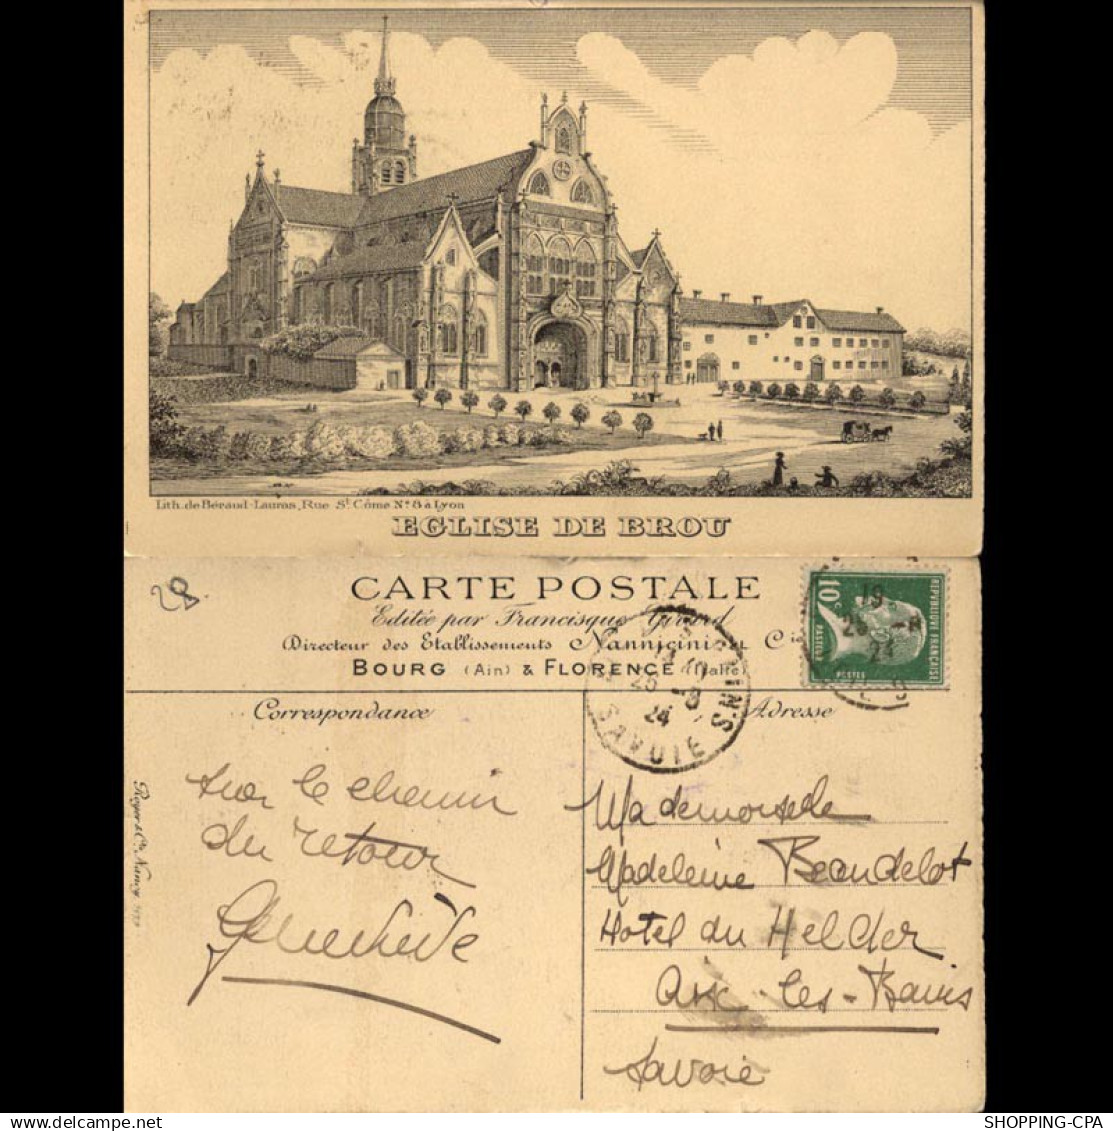 Lith. de Béraud-Lauras, Rue St. Côme No. 8 à Lyon
EGLISE DE BROU
28
CARTE POSTALE
Editée par Francisque Girard
Directeur des Etablissements Nannicini & Cie
BOURG (Ain) & FLORENCE (Italie)
Correspondance
Adresse
10c
REPUBLIQUE FRANÇAISE
PASTEUR
POSTES
19
25 -8
24
25 -8
24
SAVOIE
Royer & Cie Nancy
sur le chemin
du retour
Geneviève
Mademoiselle
Madeleine Beaudelot
Hotel du Helder
Aix-les-Bains
Savoie
SHOPPING-CPA